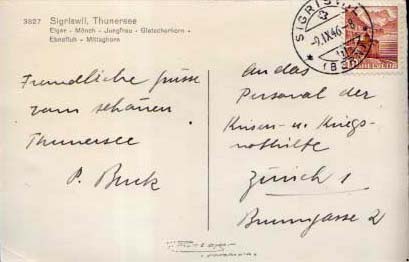 3827 Sigriswil, Thunersee
Eiger - Mönch - Jungfrau - Gletscherhorn -
Ebnefluh - Mittaghorn
Freundliche Grüsse
vom schönen
Thunersee
P. Buck
SIGRISWIL
-9.IX.46-8
HELVETIA
An das
Personal der
Krisen- u. Kriegs-
nothilfe
Zürich 1
Brunngasse 2